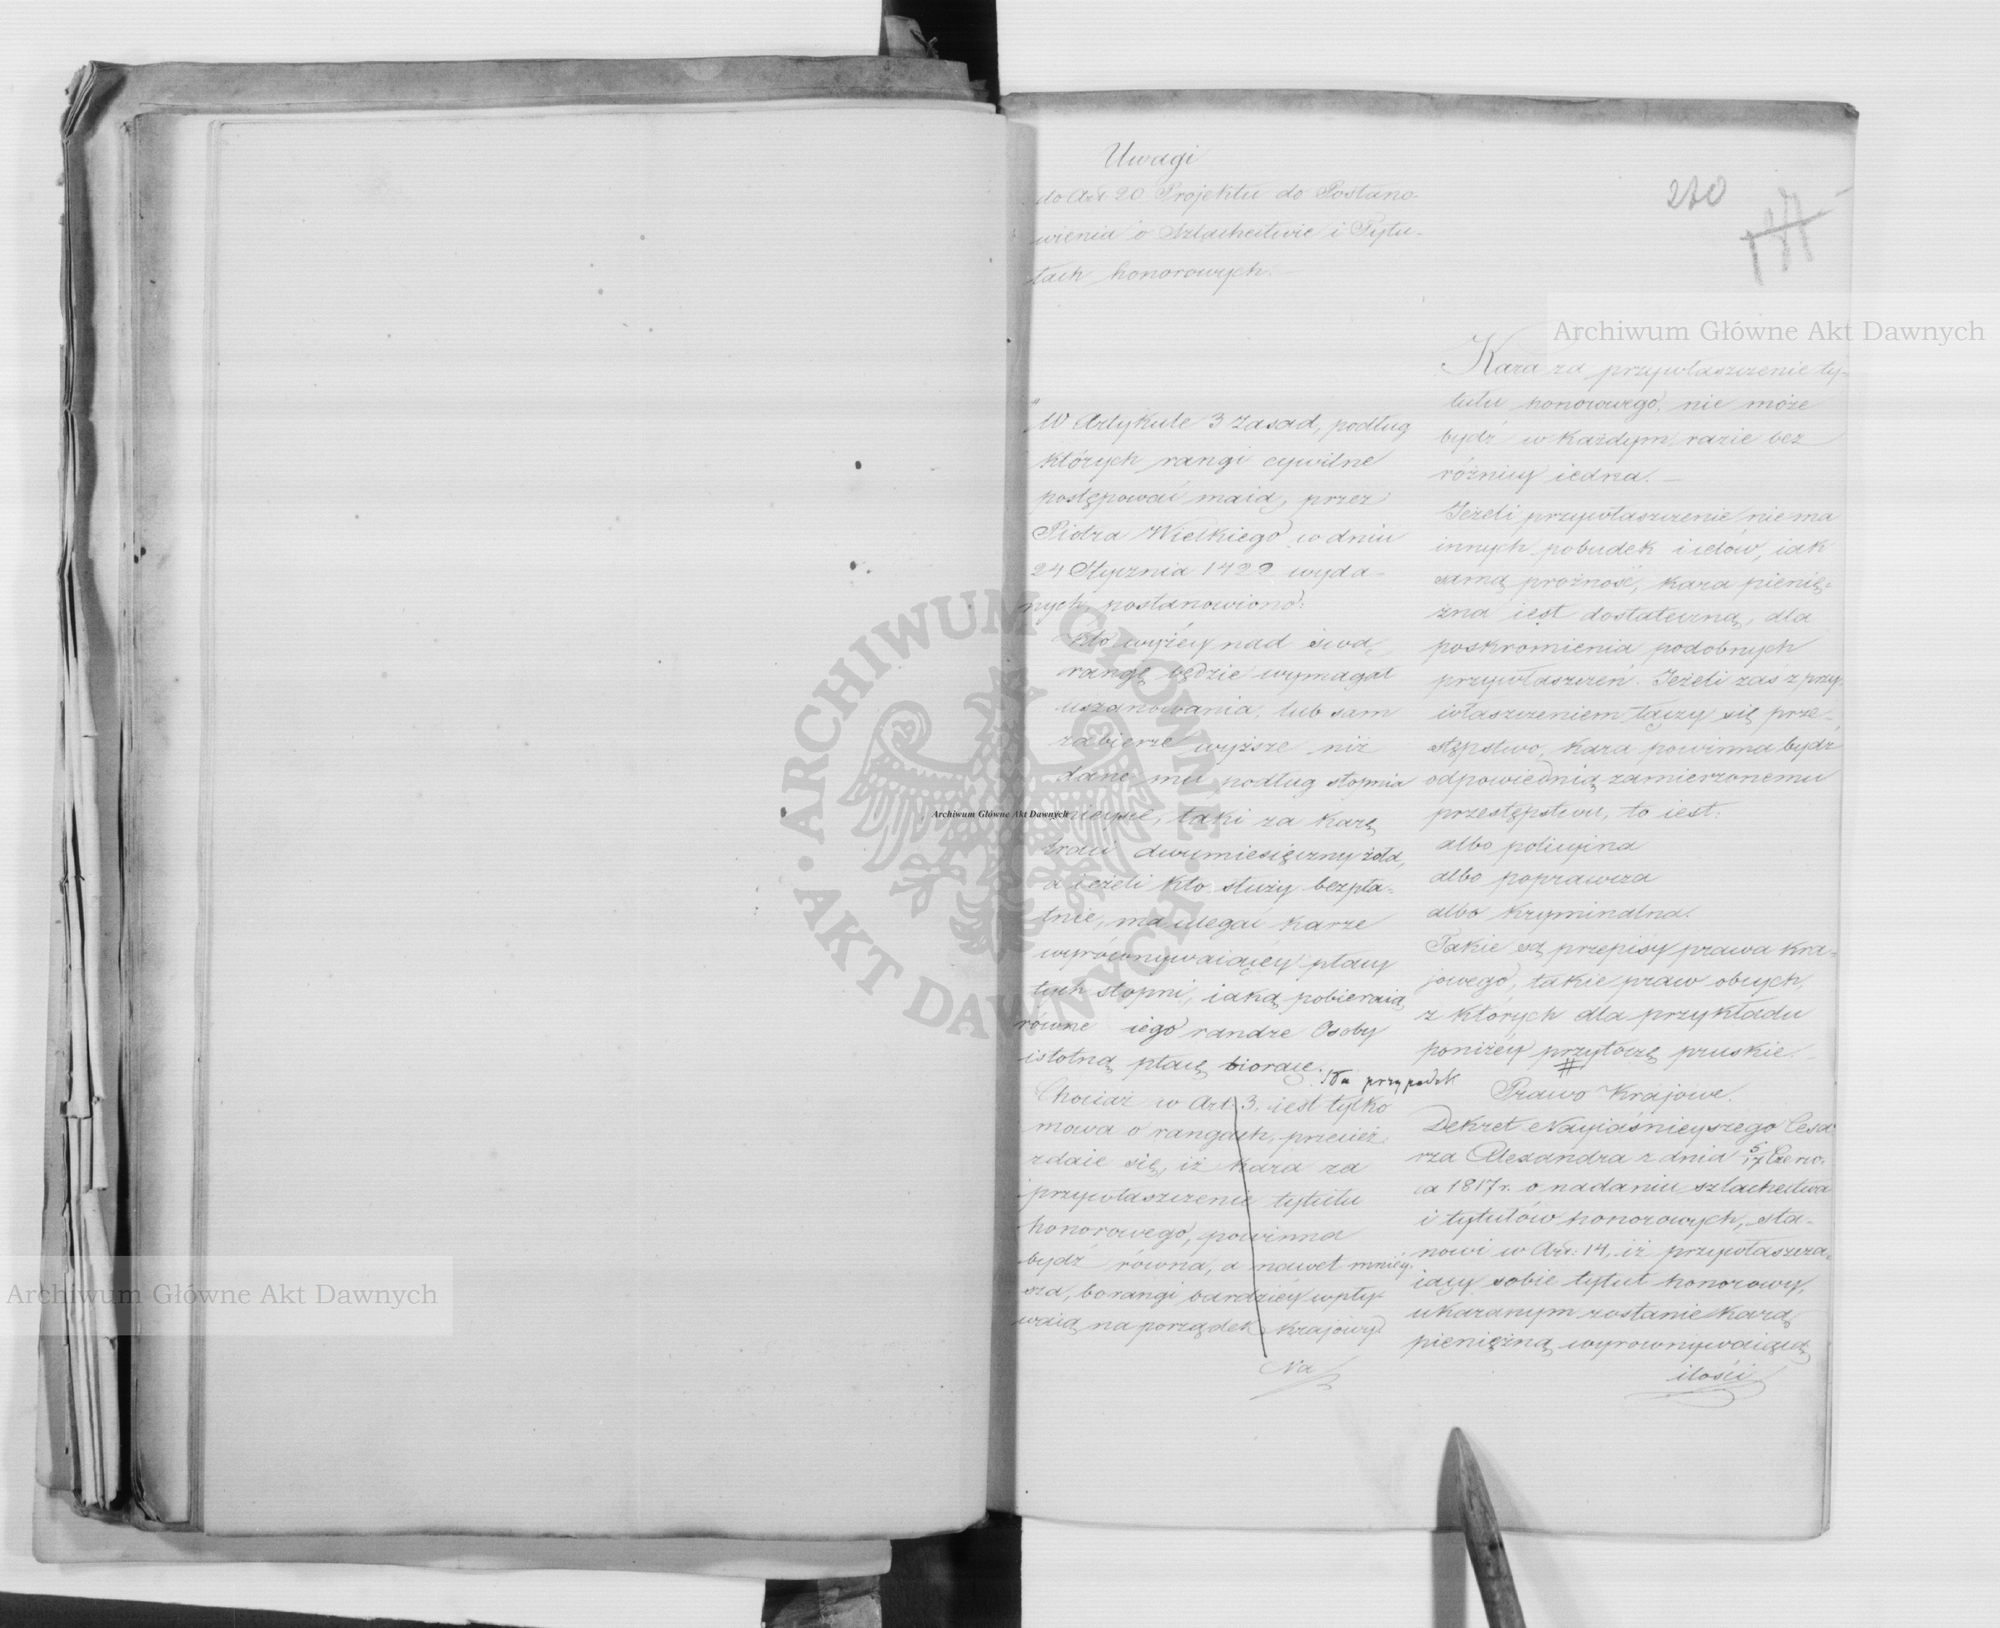 Uwagi
do Art 20 Projektu do Postano-
wienia o Szlachectwie i Tytu-
łach honorowych.
"W Artykule 3 Zasad, podług
których rangi cywilne
postępować maią, przez
Piotra Wielkiego w dniu
24 Stycznia 1422 wyda-
nych, postanowiono:
Kto wyżéy nad swą
rangę będzie wymagał
uszanowania, lub sam
zabierze wyższe niż
dane mu podług stopnia
mieysce, taki za karę
traci dwumiesięczny żołd,
a ieżeli kto służy bezpła-
tnie, ma ulegać karze
wyrównywaiącéy płacy
tych stopni, iaką pobieraią
równe iego randze Osoby
istotną płacę biorące.
Na przypadek
Chociaż w Art. 3. iest tylko
mowa o rangach, przecież
zdaie się, iż kara za
przywłaszczenie tytułu
honorowego, powinna
bydź równa, a nawet mniéy-
sza, bo rangi bardziéy wpły-
waią na porządek krajowy.
Na
210
Kara za przywłaszczenie ty-
tułu honorowego, nie może
bydź w każdym razie bez
różnicy iedna. —
Jeżeli przywłaszczenie nie ma
innych pobudek i celów, iak
samą prożność, kara pienię-
żna iest dostateczną, dla
poskromienia podobnych
przywłaszczeń. Jeżeli zaś z przy-
właszczeniem łączy się prze-
stępstwo, kara powinna bydź
odpowiednią zamierzonemu
przestępstwu, to iest:
albo policyina
albo poprawcza
albo kryminalna.
Takie są przepisy prawa kra-
jowego, takie praw obcych,
z których dla przykładu
poniżéy przytoczę pruskie. —
#
Prawo Krajowe.
Dekret Nayiaśnieyszego Cesa-
rza Alexandra z dnia 5/17 Czerw-
ca 1817 r. o nadaniu szlachectwa
i tytułów honorowych, sta-
nowi w Art: 14, iż przywłaszcza-
iący sobie tytuł honorowy,
ukaranym zostanie karą
pieniężną wyrównywaiącą
ilości
Archiwum Główne Akt Dawnych
Archiwum Główne Akt Dawnych
Archiwum Główne Akt Dawnych
ARCHIWUM GŁÓWNE AKT DAWNYCH